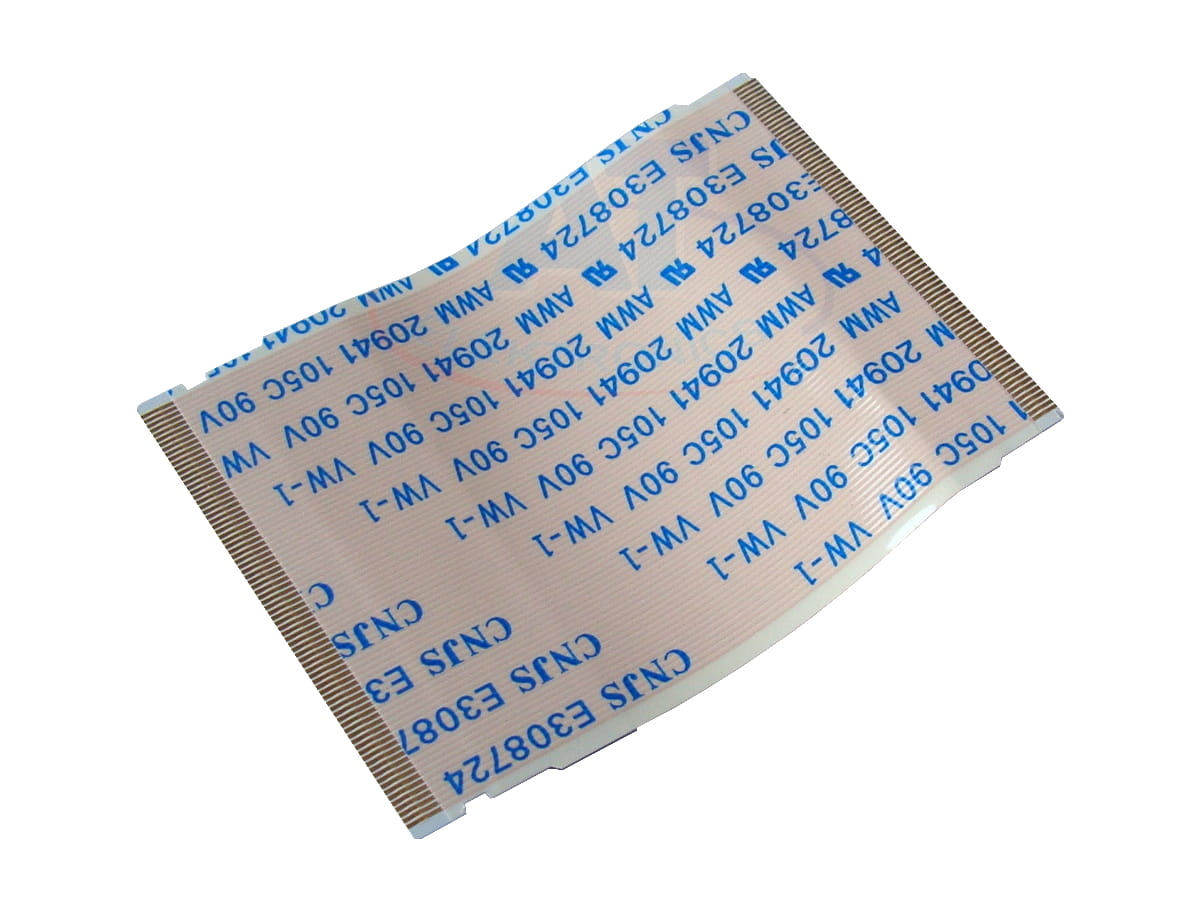 1 105C 90V VW-1 CNJS E308724
0941 105C 90V VW-1 CNJS E3087
M 20941 105C 90V VW-1 CNJS E3
AWM 20941 105C 90V VW-1 CNJS
4 RU AWM 20941 105C 90V VW-1 C
8724 RU AWM 20941 105C 90V VW-1
E308724 RU AWM 20941 105C 90V VW-1
JS E308724 RU AWM 20941 105C 90V VW
CNJS E308724 RU AWM 20941 105C 90V
CNJS E308724 RU AWM 20941 105